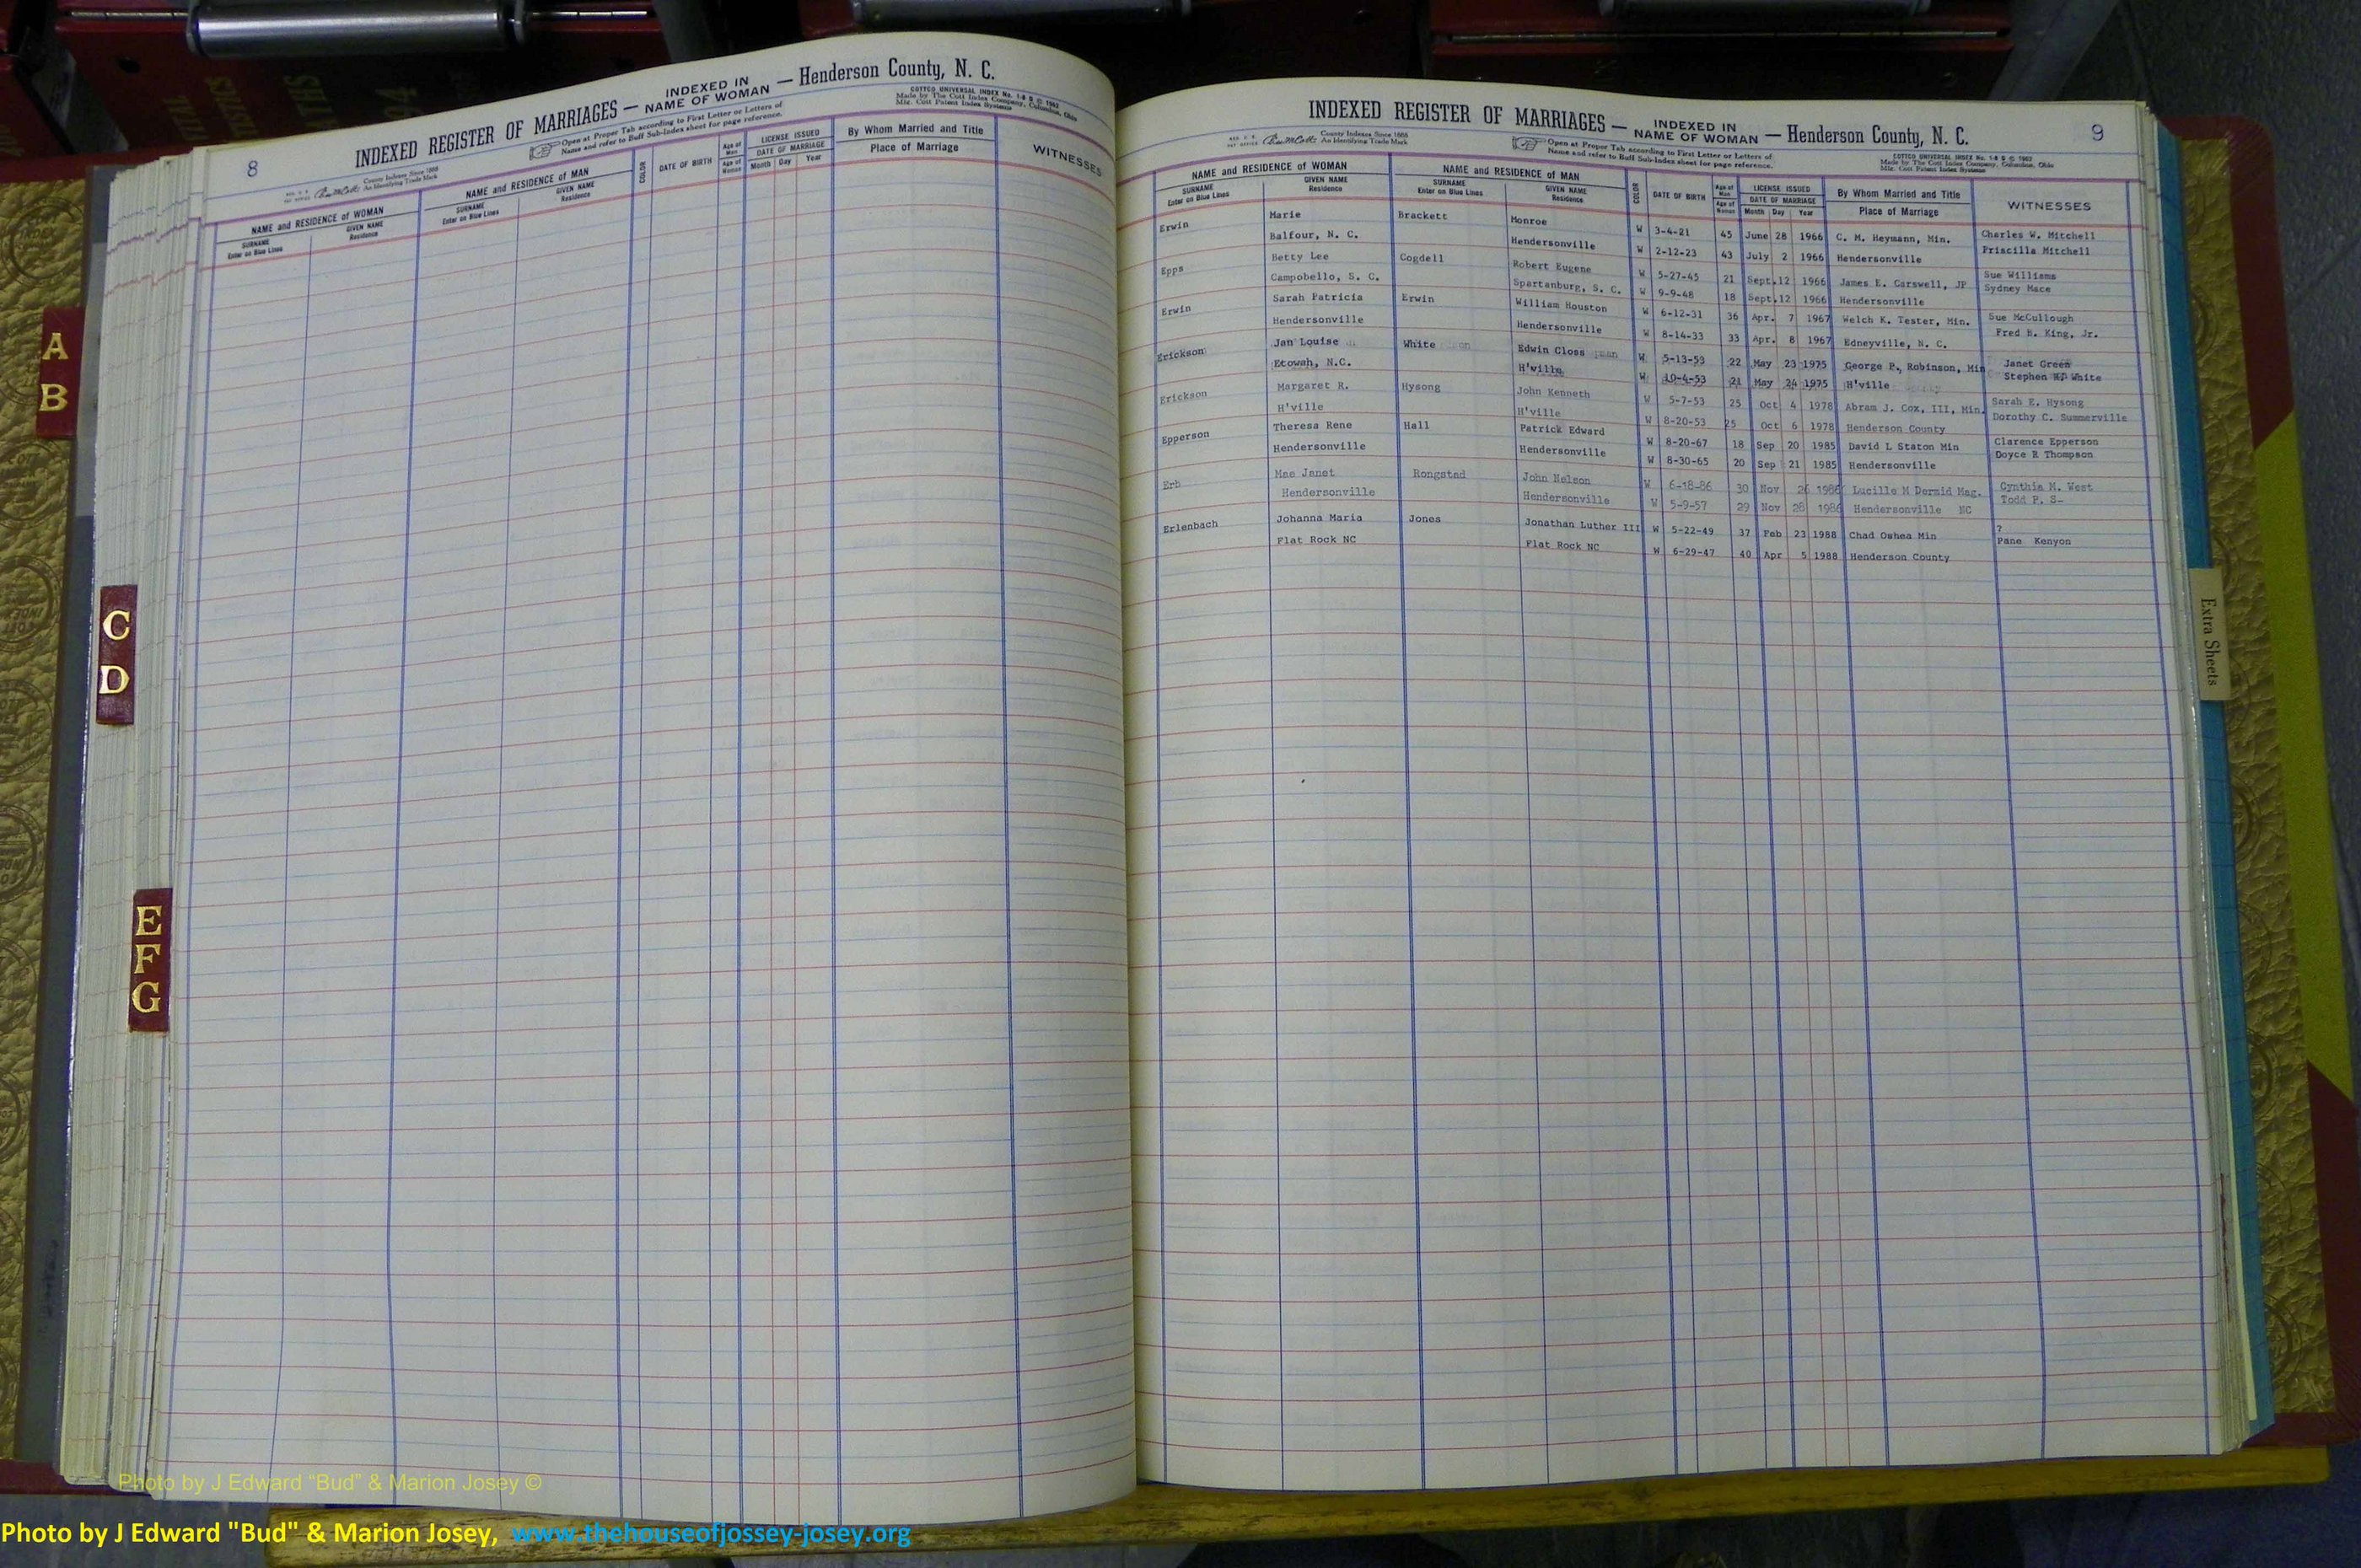 8
INDEXED REGISTER OF MARRIAGES — INDEXED IN NAME OF WOMAN — Henderson County, N. C.
County Indexes Since 1888
An Identifying Trade Mark
Open at Proper Tab according to First Letter or Letters of
Name and refer to Buff Sub-Index sheet for page reference.
COTTCO UNIVERSAL INDEX No. 1-6 S © 1962
Made by The Cott Index Company, Columbus, Ohio
Mfr. Cott Patent Index Systems
NAME and RESIDENCE of WOMAN NAME and RESIDENCE of MAN COLOR DATE OF BIRTH Age of Man Age of Woman LICENSE ISSUED DATE OF MARRIAGE By Whom Married and Title WITNESSES
SURNAME Enter on Blue Lines GIVEN NAME Residence SURNAME Enter on Blue Lines GIVEN NAME Residence Month Day Year Place of Marriage
9
INDEXED REGISTER OF MARRIAGES — INDEXED IN NAME OF WOMAN — Henderson County, N. C.
County Indexes Since 1888
An Identifying Trade Mark
Open at Proper Tab according to First Letter or Letters of
Name and refer to Buff Sub-Index sheet for page reference.
COTTCO UNIVERSAL INDEX No. 1-6 S © 1962
Made by The Cott Index Company, Columbus, Ohio
Mfr. Cott Patent Index Systems
NAME and RESIDENCE of WOMAN NAME and RESIDENCE of MAN COLOR DATE OF BIRTH Age of Man Age of Woman LICENSE ISSUED DATE OF MARRIAGE By Whom Married and Title WITNESSES
SURNAME Enter on Blue Lines GIVEN NAME Residence SURNAME Enter on Blue Lines GIVEN NAME Residence Month Day Year Place of Marriage
Erwin Marie Brackett Monroe W 3-4-21 45 June 28 1966 C. M. Heymann, Min. Charles W. Mitchell
Balfour, N. C. Hendersonville W 2-12-23 43 July 2 1966 Hendersonville Priscilla Mitchell
Epps Betty Lee Cogdell Robert Eugene W 5-27-45 21 Sept. 12 1966 James E. Carswell, JP Sue Williams
Campobello, S. C. Spartanburg, S. C. W 9-9-48 18 Sept. 12 1966 Hendersonville Sydney Mace
Erwin Sarah Patricia Erwin William Houston W 6-12-31 36 Apr. 7 1967 Welch K. Tester, Min. Sue McCullough
Hendersonville Hendersonville W 8-14-33 33 Apr. 8 1967 Edneyville, N. C. Fred B. King, Jr.
Erickson Jan Louise White Edwin Closs W 5-13-53 22 May 23 1975 George P. Robinson, Min Janet Green
Etowah, N.C. H'ville W 10-4-53 21 May 24 1975 H'ville Stephen White
Erickson Margaret R. Hysong John Kenneth W 5-7-53 25 Oct 4 1978 Abram J. Cox, III, Min. Sarah E. Hysong
H'ville H'ville W 8-20-53 25 Oct 6 1978 Henderson County Dorothy C. Summerville
Epperson Theresa Rene Hall Patrick Edward W 8-20-67 18 Sep 20 1985 David L Staton Min Clarence Epperson
Hendersonville Hendersonville W 8-30-65 20 Sep 21 1985 Hendersonville Doyce R Thompson
Erb Mae Janet Rongstad John Nelson W 6-18-86 30 Nov 26 1986 Lucille M Dermid Mag. Cynthia M. West
Hendersonville Hendersonville W 5-9-57 29 Nov 28 1986 Hendersonville NC Todd P. S-
Erlenbach Johanna Maria Jones Jonathan Luther III W 5-22-49 37 Feb 23 1988 Chad Oshea Min ?
Flat Rock NC Flat Rock NC W 6-29-47 40 Apr 5 1988 Henderson County Pane Kenyon
A
B
C
D
E
F
G
Extra Sheets
Photo by J Edward “Bud” & Marion Josey ©
Photo by J Edward "Bud" & Marion Josey, www.thehouseofjossey-josey.org